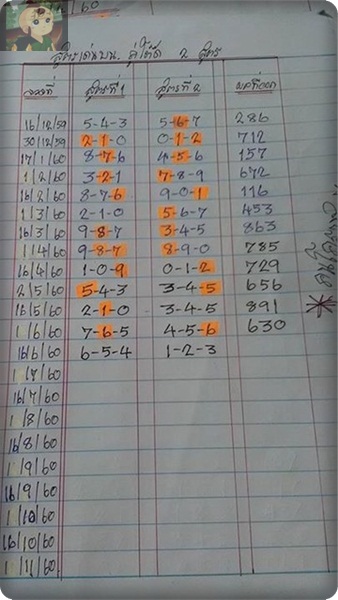 /60
สูตรเด่นบน คู่โต๊ด 2 สูตร
งวดที่ สูตรที่ 1 สูตรที่ 2 ผลที่ออก
16/12/59 5-4-3 5-6-7 286
30/12/59 2-1-0 0-1-2 712
17/1/60 8-7-6 4-5-6 157
1/2/60 3-2-1 7-8-9 672
16/2/60 8-7-6 9-0-1 116
1/3/60 2-1-0 5-6-7 453
16/3/60 9-8-7 3-4-5 863
1/4/60 9-8-7 8-9-0 785
16/4/60 1-0-9 0-1-2 729
2/5/60 5-4-3 3-4-5 656
16/5/60 2-1-0 3-4-5 891
1/6/60 7-6-5 4-5-6 630
16/6/60 6-5-4 1-2-3
1/7/60
16/7/60
1/8/60
16/8/60
1/9/60
16/9/60
1/10/60
16/10/60
1/11/60